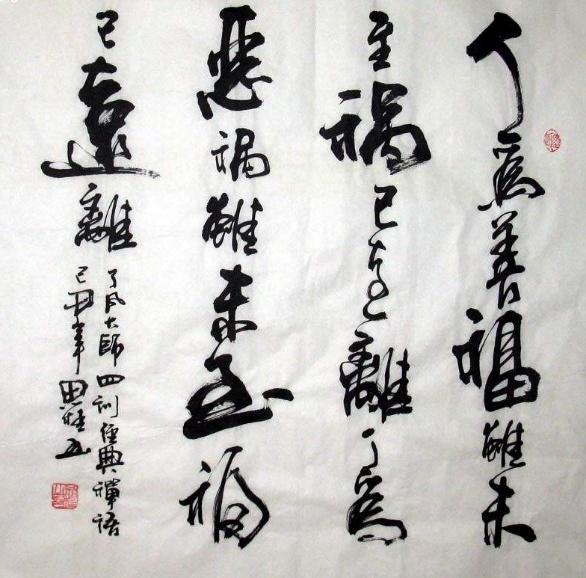 人為善福雖未
至禍已遠離人為
惡禍雖未至福
已遠離
了凡大師四训经典禪语
己丑年